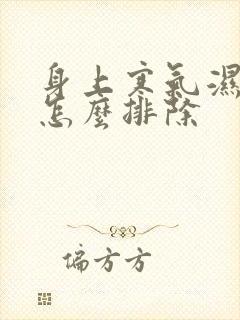 身上寒氣濕
怎麼排除
偏方方